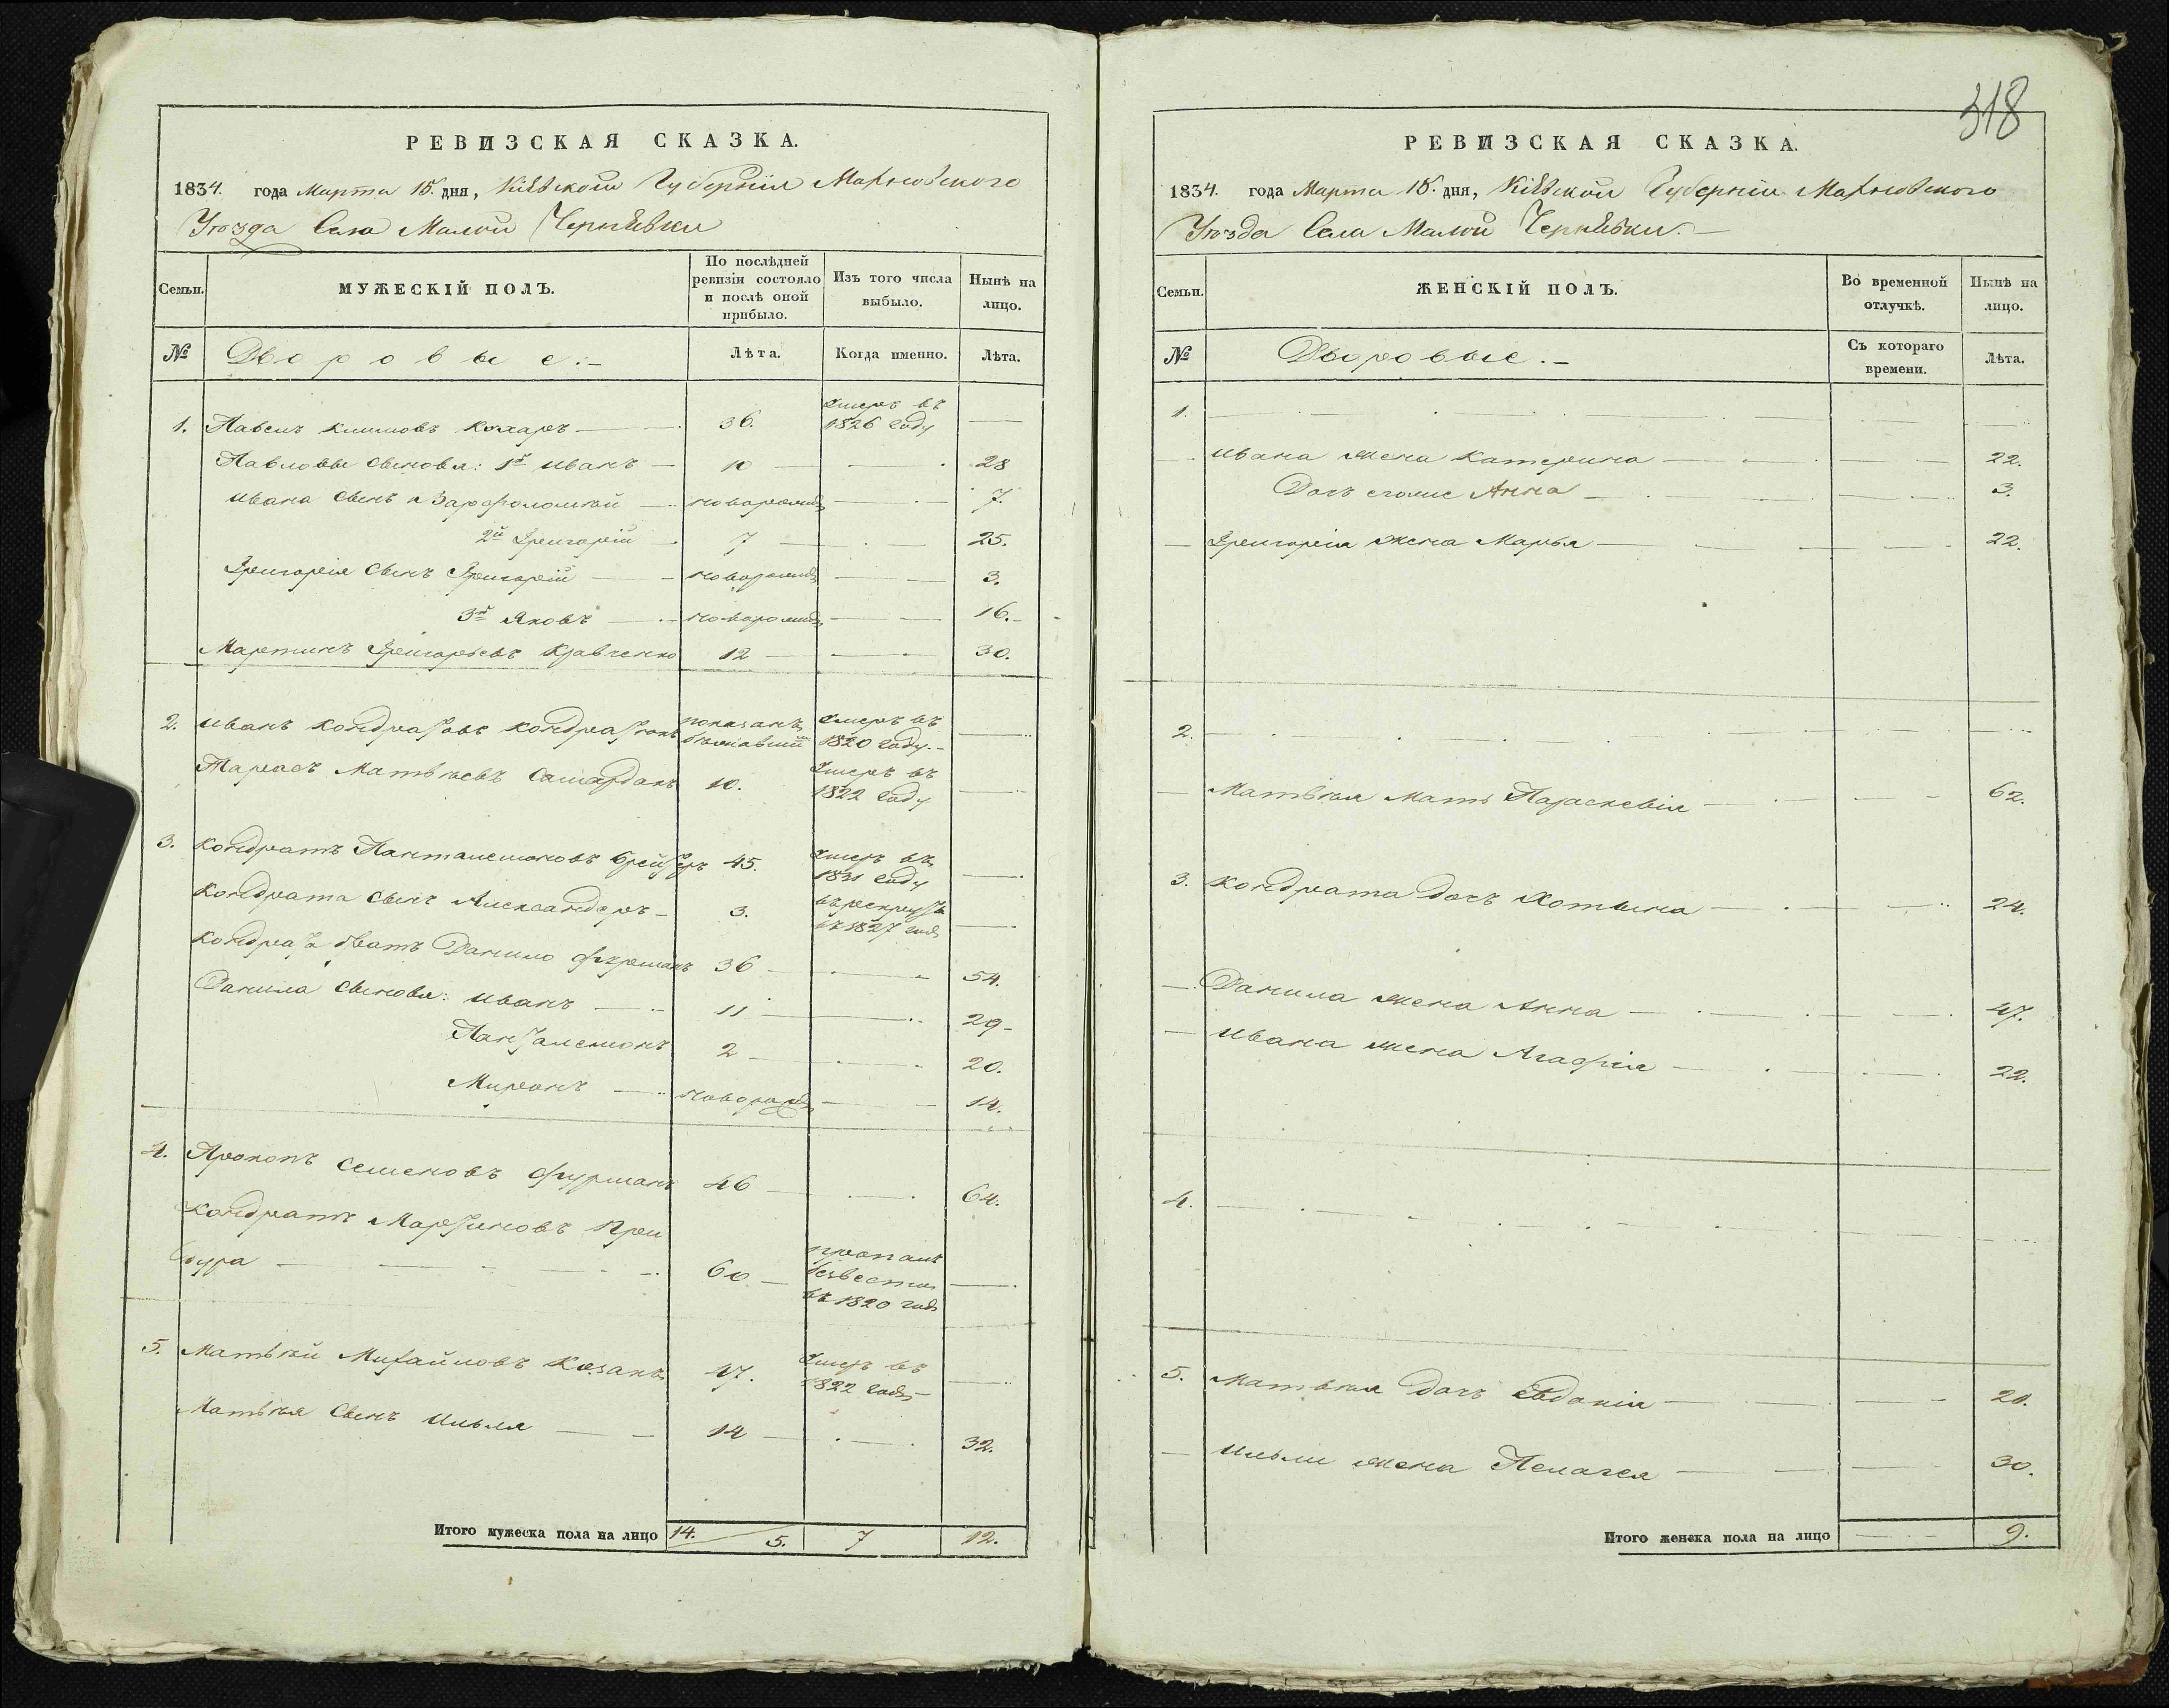 РЕВИЗСКАЯ СКАЗКА.
1834. года Марта 15. дня, Кіевской Губерніи Махновского
Уезда Села Малой Чернявки
Семьи.
МУЖЕСКІЙ ПОЛЪ.
По послѣдней
ревизіи состояло
и послѣ оной
прибыло.
Изъ того числа
выбыло.
Нынѣ на
лицо.
№ Дворовые:
Лѣта.
Когда именно.
Лѣта.
1. Павелъ Климовъ Кухаръ 36. умеръ въ
1826 году
Павловы сыновья: 1й Иванъ 10 28
Ивана сынъ Варфоломей новорожд 7.
2й Григорій 7 25.
Григорія сынъ Григорій новорожд 3.
3й Яковъ новорожд 16.
Мартинъ Григорьевъ Кравченко 12 30.
2. Иванъ Кондратовъ показанъ умеръ въ
1820 году.
Тарасъ Матвѣевъ 10. умеръ въ
1822 году
3. Кондратъ Панталемоновъ 45. умеръ въ
1831 году
Кондрата сынъ Александеръ 3. въ рекруты
въ 1827 год
Кондрата братъ Данило Фурманъ 36 54.
Данила сыновья: Иванъ 11 29
Панталемонъ 2 20.
Миронъ новорожд 14.
4. Прокопъ Семеновъ Фурманъ 46 64.
Кондратъ Мартиновъ При
бура 60 пропалъ
безвести
въ 1820 год
5. Матвѣй Михайловъ Козакъ 47. умеръ въ
1822 году
Матвѣя сынъ Илья 14 32.
Итого мужеска пола на лицо 14. 5. 7 12.
318
РЕВИЗСКАЯ СКАЗКА.
1834. года Марта 15. дня, Кіевской Губерніи Махновского
Уезда Села Малой Чернявки.
Семьи.
ЖЕНСКІЙ ПОЛЪ.
Во временной
отлучкѣ.
Нынѣ на
лицо.
№ Дворовые.
Съ котораго
времени.
Лѣта.
1.
Ивана жена Катерина 22.
Дочь Анна 3.
Григорія жена Марья 22.
2.
Матвѣя мать Параскевія 62.
3. Кондрата дочь Хотына 24.
Данила жена Анна 47.
Ивана жена Агафія 22.
4.
5. Матвѣя дочь Евдокія 20.
Ильи жена Пелагея 30.
Итого женска пола на лицо 9.